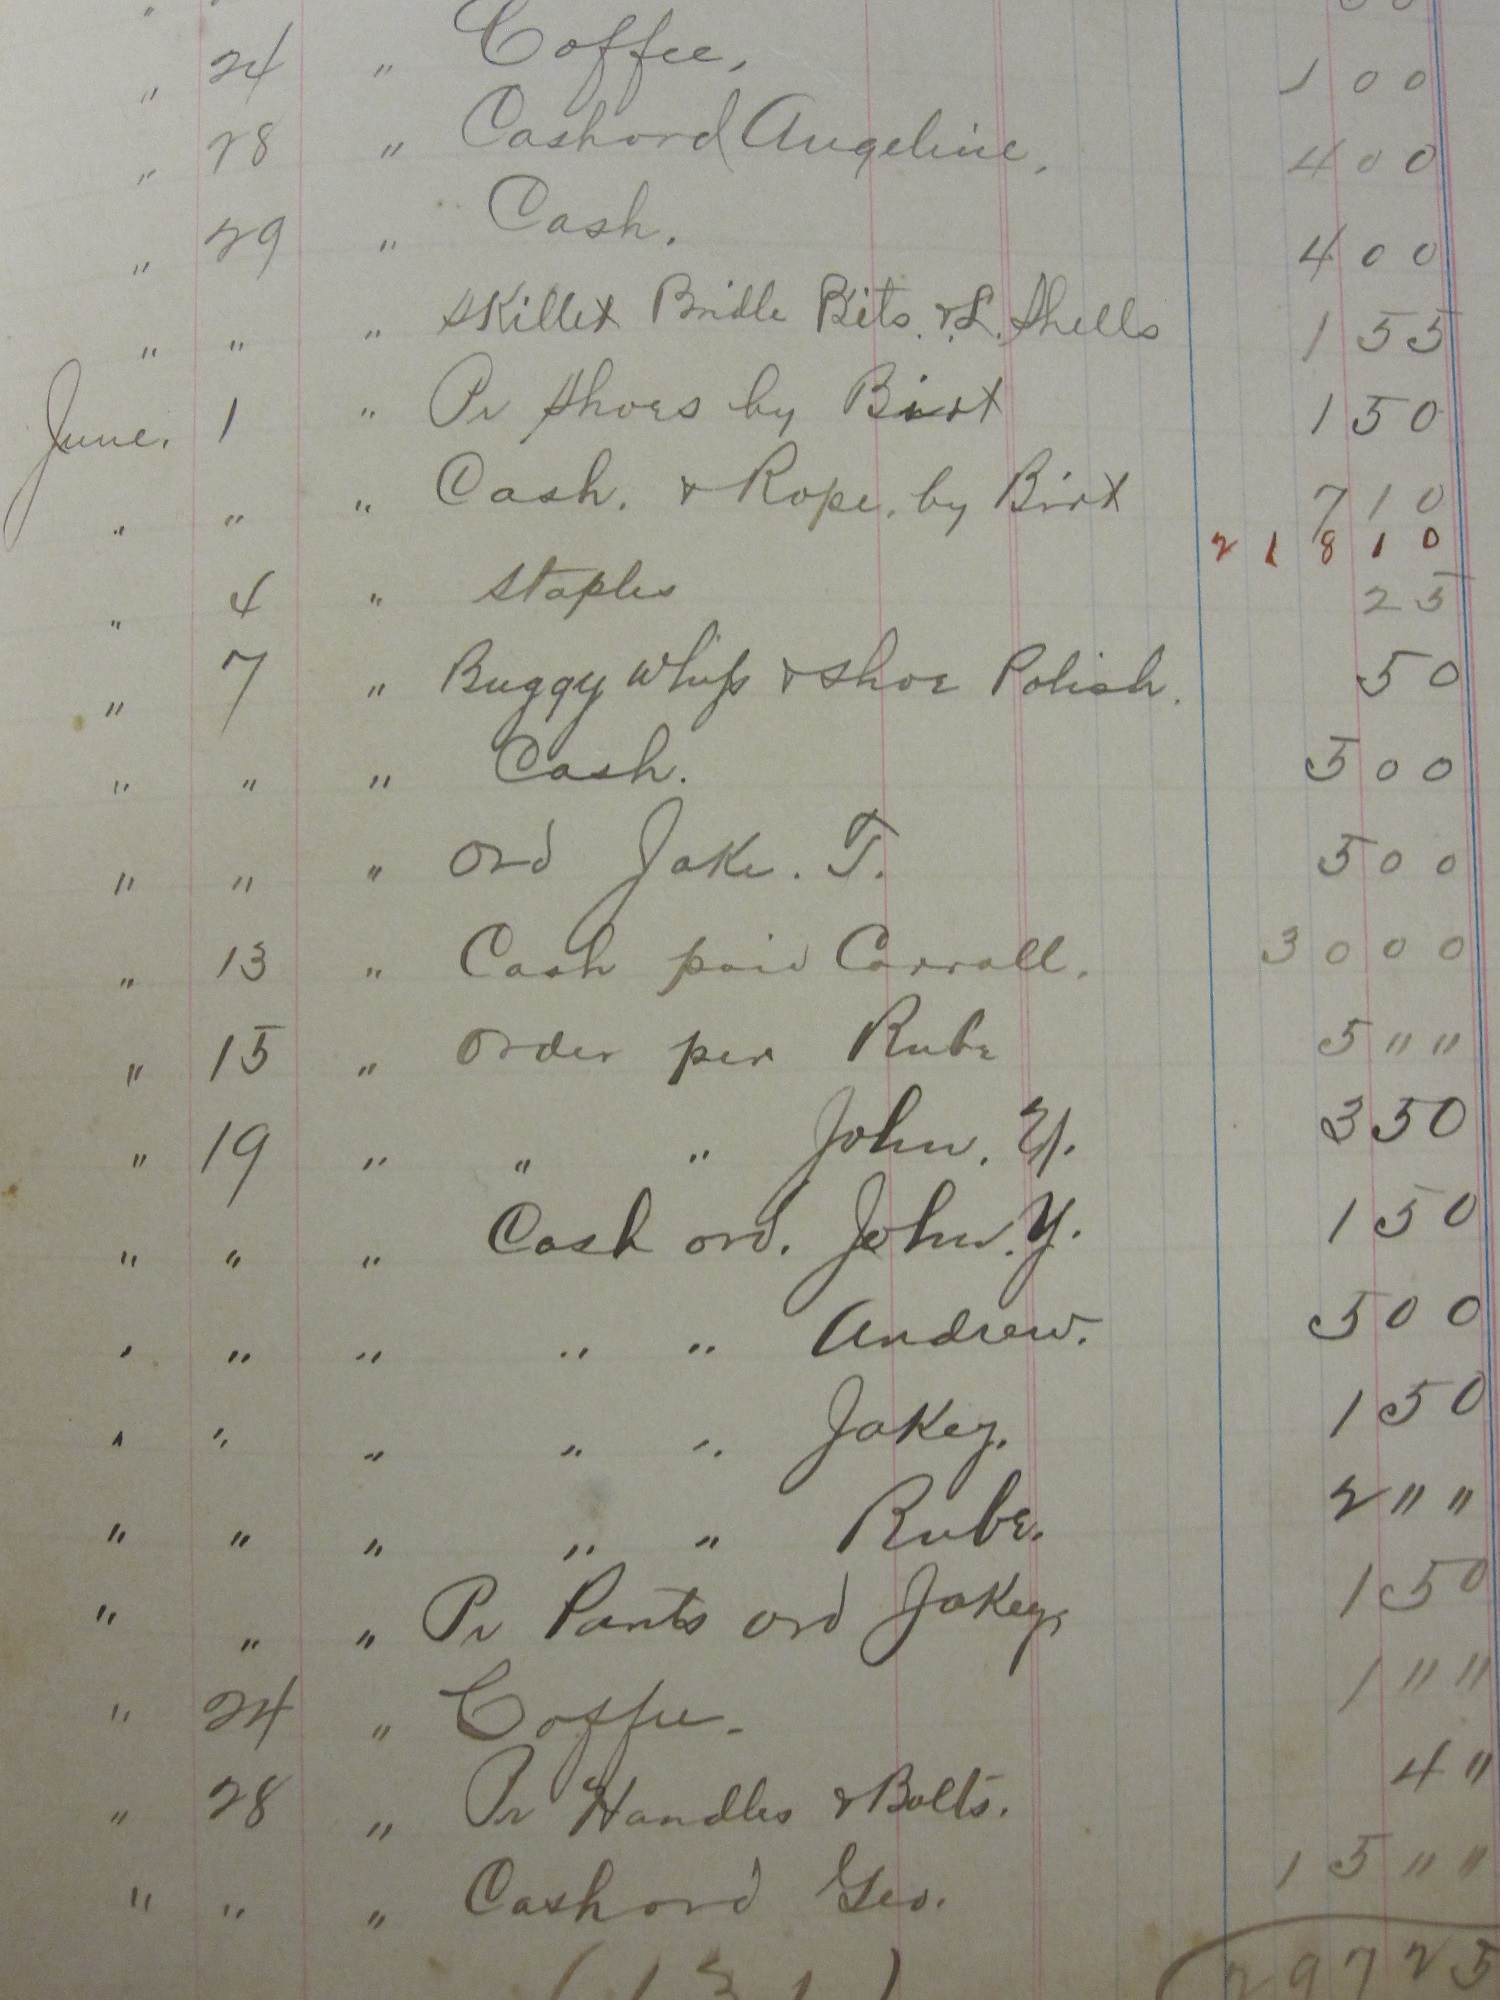 " 24 " Coffee, 1 00
" 28 " Cash ord Angeline, 4 00
" 29 " Cash. 4 00
" " " Skillet Bridle Bits. & L. Shells 1 55
June. 1 " Pr Shoes by Birt 1 50
" " " Cash. & Rope. by Birt 7 10
218 10
" 4 " Staples 25
" 7 " Buggy Whip & Shoe Polish. 50
" " " Cash. 5 00
" " " Ord Jake. T. 5 00
" 13 " Cash paid Carroll. 30 00
" 15 " Order per Rube 5 " "
" 19 " " " John. Y. 3 50
" " " Cash ord. John. Y. 1 50
" " " " " Andrew. 5 00
" " " " " Jakey. 1 50
" " " " " Rube. 2 " "
" " " Pr Pants ord Jakey, 1 50
" 24 " Coffee. 1 " "
" 28 " Pr Handles & Bolts. 4 "
" " " Cash ord Geo. 15 " "
(131) 297 25